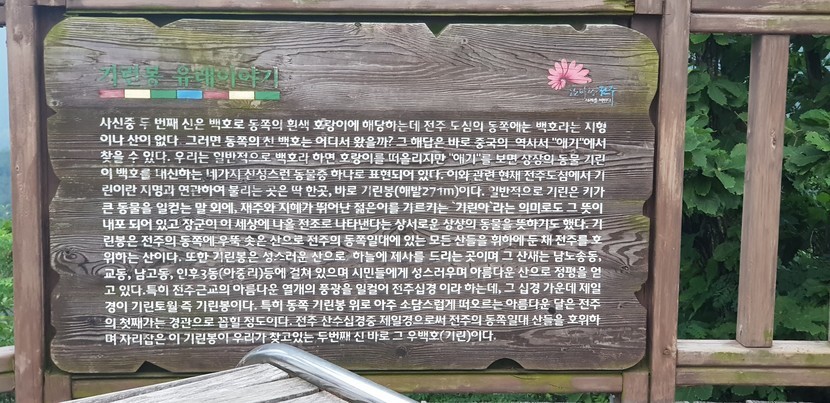 기린봉 유래이야기
사신중 두 번째 신은 백호로 동쪽의 흰색 호랑이에 해당하는데 전주 도심의 동쪽에는 백호라는 지형
이나 산이 없다. 그러면 동쪽의 친 백호는 어디서 왔을까? 그 해답은 바로 중국의 역사서 "얘기"에서
찾을 수 있다. 우리는 일반적으로 백호라 하면 호랑이를 떠올리지만 "얘기"를 보면 상상의 동물 기린
이 백호를 대신하는 네가지 신성스런 동물중 하나로 표현되어 있다. 이와 관련 현재 전주도심에서 기
린이란 지명과 연관하여 불리는 곳은 딱 한곳, 바로 기린봉(해발271m)이다. 일반적으로 기린은 키가
큰 동물을 일컫는 말 외에, 재주와 지혜가 뛰어난 젊은이를 가르키는 '기린아'라는 의미로도 그 뜻이
내포 되어 있고 장군이 이 세상에 나올 전조로 나타낸다는 상서로운 상상의 동물을 뜻하기도 했다. 기
린봉은 전주의 동쪽에 우뚝 솟은 산으로 전주의 동쪽일대에 있는 모든 산들을 휘하에 둔 채 전주를 호
위하는 산이다. 또한 기린봉은 성스러운 산으로 하늘에 제사를 드리는 곳이며 그 산새는 남노송동,
교동, 남고동, 인후3동(아중리)등에 걸쳐 있으며 시민들에게 성스러우며 아름다운 산으로 정평을 얻
고 있다. 특히 전주근교의 아름다운 열개의 풍광을 일컬어 전주십경 이라 하는데, 그 십경 가운데 제일
경이 기린토월 즉 기린봉이다. 특히 동쪽 기린봉 위로 아주 소담스럽게 떠오르는 아름다운 달은 전주
의 첫째가는 경관으로 꼽힐 정도이다. 전주 산수십경중 제일경으로써 전주의 동쪽일대 산들을 호위하
며 자리잡은 이 기린봉이 우리가 찾고있는 두번째 신 바로 그 우백호(기린)이다.